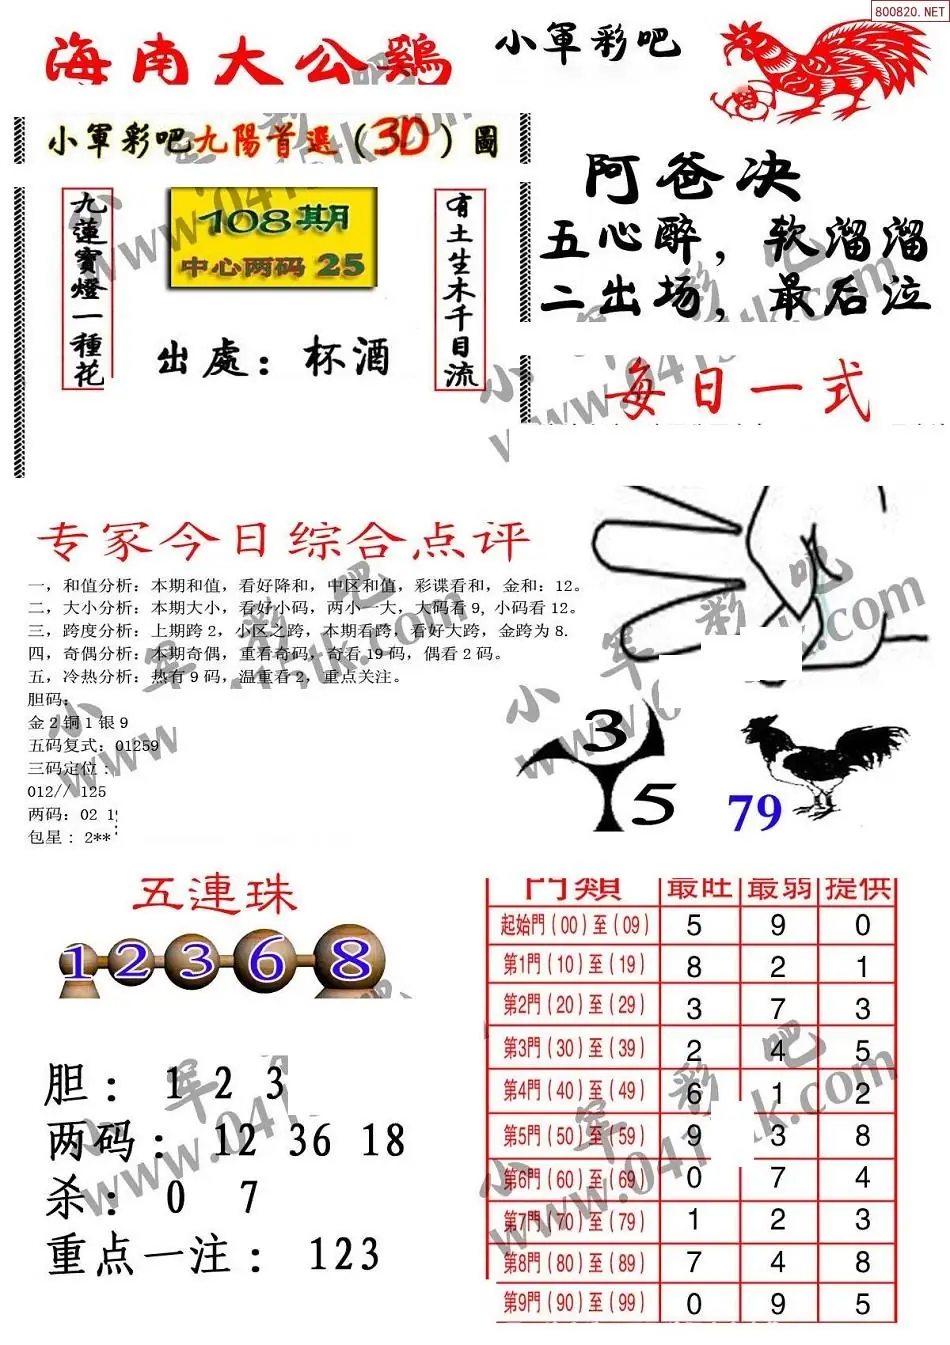 800820.NET
海南大公鷄
小軍彩吧
小軍彩吧九陽首選(3D)圖
九蓮寶燈一種花
108期
中心两码 25
有土生木千目流
出處：杯酒
阿爸决
五心醉，软溜溜
二出场，最后泣
每日一式
专家今日综合点评
一，和值分析：本期和值，看好降和，中区和值，彩谍看和，金和：12。
二，大小分析：本期大小，看好小码，两小一大，大码看9，小码看12。
三，跨度分析：上期跨2，小区之跨，本期看跨，看好大跨，金跨为8.
四，奇偶分析：本期奇偶，重看奇码，奇看19码，偶看2码。
五，冷热分析：热有9码，温重看2，重点关注。
胆码：
金2铜1银9
五码复式：01259
三码定位：
012// 125
两码：02 19
包星：2**
3
5
79
五連珠
1 2 3 6 8
胆： 1 2 3
两码： 12 36 18
杀： 0 7
重点一注： 123
門類 最旺 最弱 提供
起始門(00)至(09) 5 9 0
第1門(10)至(19) 8 2 1
第2門(20)至(29) 3 7 3
第3門(30)至(39) 2 4 5
第4門(40)至(49) 6 1 2
第5門(50)至(59) 9 3 8
第6門(60)至(69) 0 7 4
第7門(70)至(79) 1 2 3
第8門(80)至(89) 7 4 8
第9門(90)至(99) 0 9 5
小军彩吧